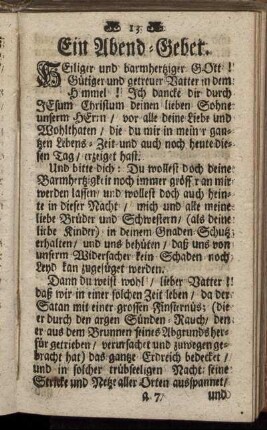 13.
Ein Abend-Gebet.
HEiliger und barmhertziger GOtt!
Gütiger und getreuer Vatter in dem
Himmel! Ich dancke dir durch
JEsum Christum deinen lieben Sohne
unserm HErrn / vor alle deine Liebe und
Wohlthaten / die du mir in meiner gan-
tzen Lebens-Zeit und auch noch heute die-
sen Tag / erzeiget hast.
Und bitte dich: Du wollest doch deine
Barmhertzigkeit noch immer grösser an mir
werden lassen / und wollest doch auch hein-
te in dieser Nacht / mich und alle meine
liebe Brüder und Schwestern / (als deine
liebe Kinder) in deinem Gnaden Schutz
erhalten / und uns behüten / daß uns von
unserm Widersacher kein Schaden noch
Leyd kan zugefüget werden.
Dann du weist wohl / lieber Vatter!
daß wir in einer solchen Zeit leben / da der
Satan mit einer grossen Finsternüs; (die
er durch den argen Sünden-Rauch / den
er aus dem Brunnen seines Abgrunds her-
für getrieben / verursachet und zuwegen ge-
bracht hat) das gantze Erdreich bedecket /
und in solcher trübseeligen Nacht seine
Stricke und Netze aller Orten ausspannet /
a. 7. und